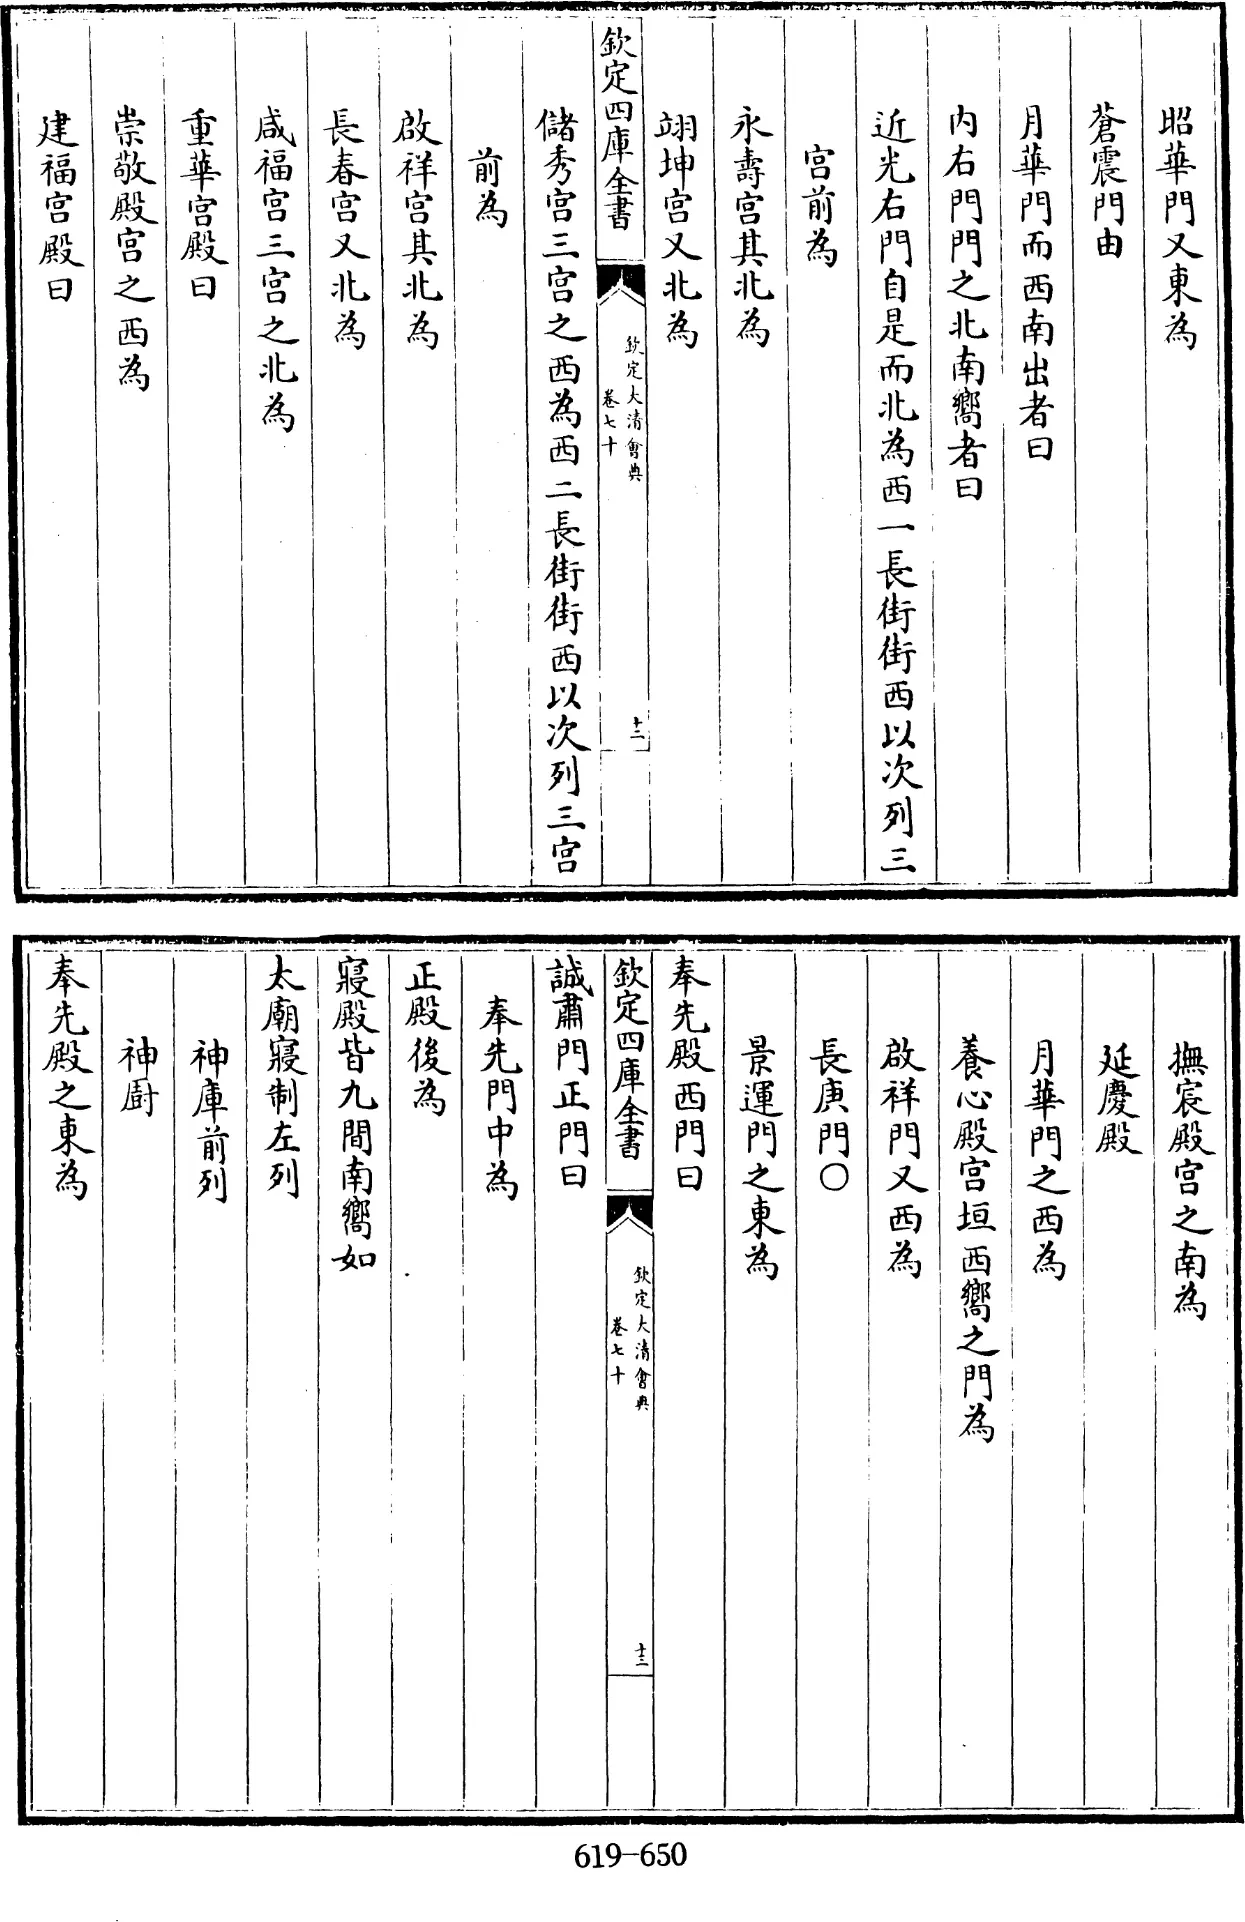 昭華門又東為
蒼震門由
月華門而西南出者曰
內右門門之北南嚮者曰
近光右門自是而北為西一長街街西以次列三
宮前為
永壽宮其北為
翊坤宮又北為
欽定四庫全書
欽定大清會典
卷七十
十二
儲秀宮三宮之西為西二長街街西以次列三宮
前為
啟祥宮其北為
長春宮又北為
咸福宮三宮之北為
重華宮殿曰
崇敬殿宮之西為
建福宮殿曰
撫宸殿宮之南為
延慶殿
月華門之西為
養心殿宮垣西嚮之門為
啟祥門又西為
長庚門〇
景運門之東為
奉先殿西門曰
欽定四庫全書
欽定大清會典
卷七十
十三
誠肅門正門曰
奉先門中為
正殿後為
寢殿皆九間南嚮如
太廟寢制左列
神庫前列
神廚
奉先殿之東為
619-650